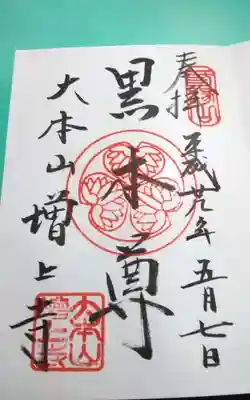 奉拝
平成廿九年五月七日
黒本尊
大本山増上寺
大本山
増上寺